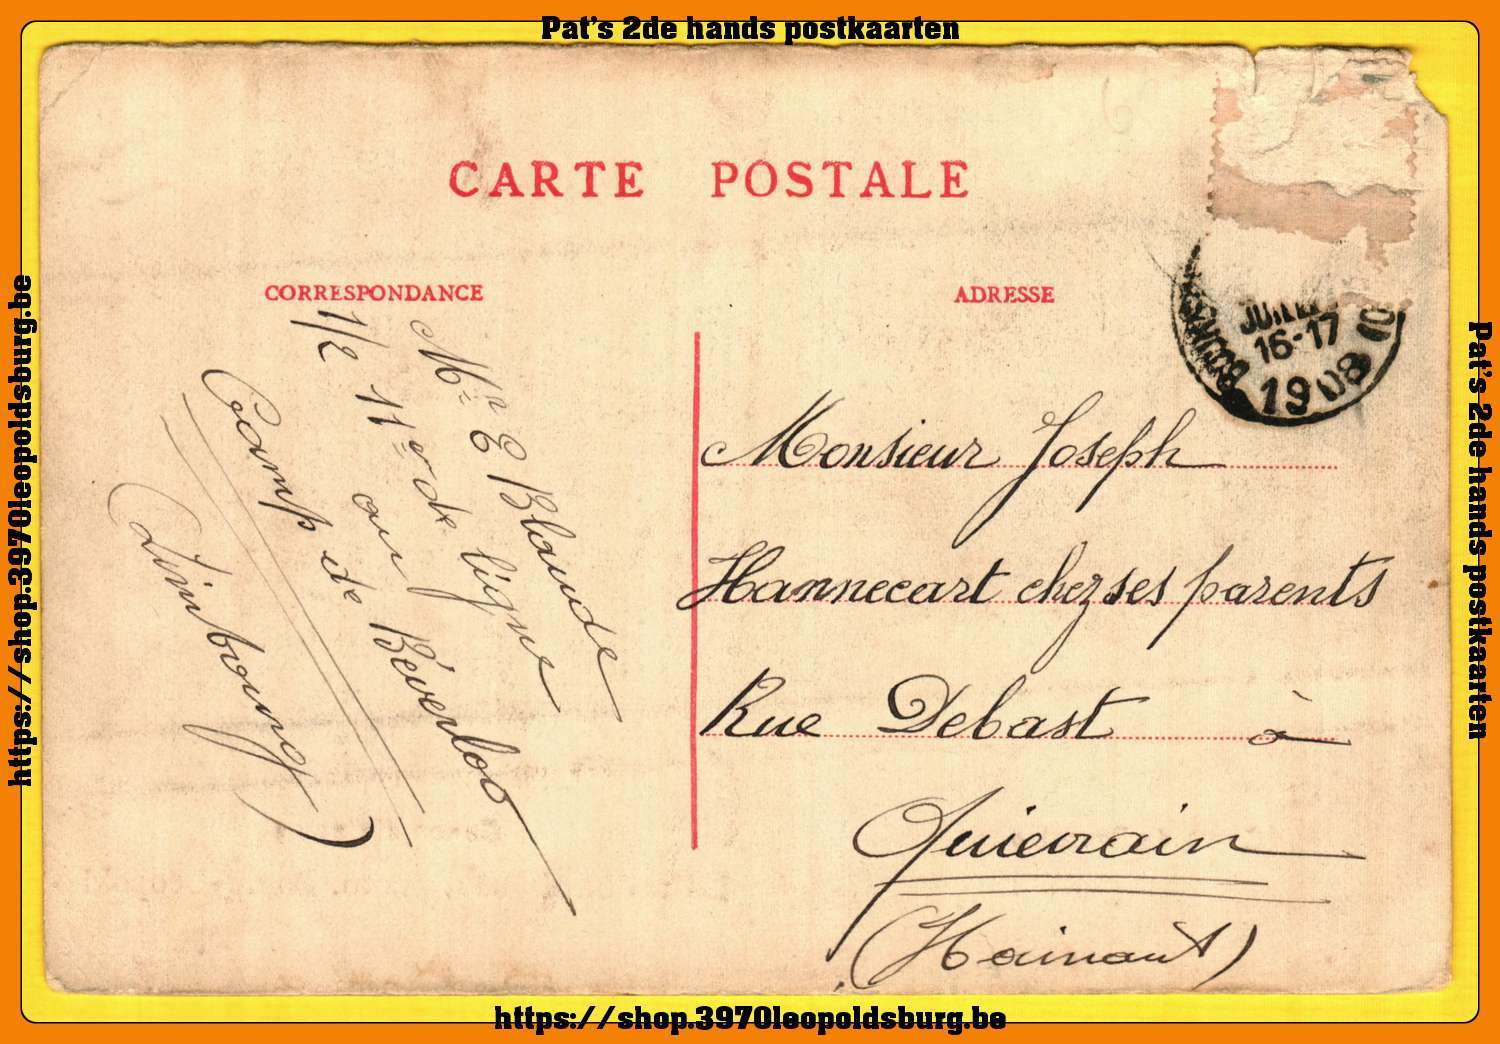 Pat's 2de hands postkaarten
CARTE POSTALE
CORRESPONDANCE
ADRESSE
JUILLET
16-17
1908
Mr E Blaude
1/2 11e de ligne
au
Camp de Béverloo
(Limbourg)
Monsieur Joseph
Hannecart chez ses parents
Rue Debast à
Quiévrain
(Hainaut)
https://shop.3970leopoldsburg.be
https://shop.3970leopoldsburg.be
Pat's 2de hands postkaarten